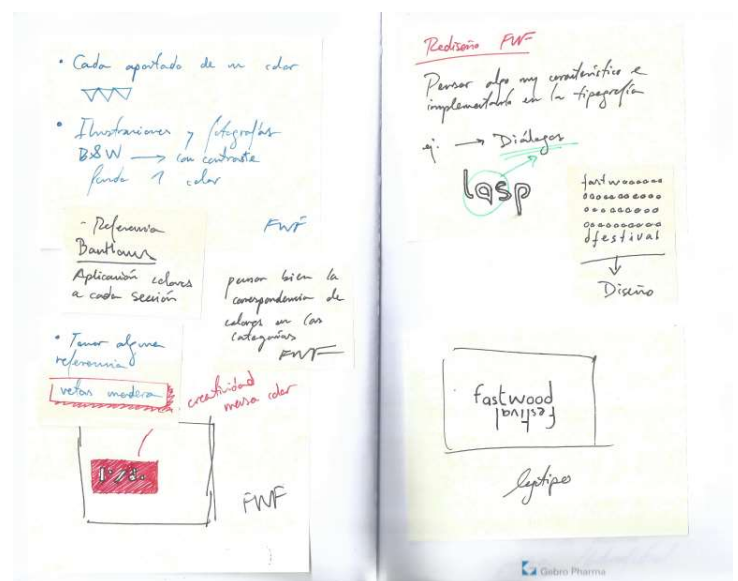 • Cada apartado de un color
• Ilustraciones y fotografías
B&W → con contraste
fondo 1 color
- Referencia
Bauhaus
Aplicación colores
a cada sección
FWF
pensar bien la
correspondencia de
colores en las
categorías
FWF
• Tener alguna
referencia
vetas madera
creatividad
mersa color
FWF
Rediseño FWF
Pensar algo muy característico e
implementarlo en la tipografía
ej. → Diálogos
lasp
fastwooooooo
ooooooooo
ooooooooo
ooooooooo
dfestival
Diseño
fastwood
festival
logotipos
Gebro Pharma